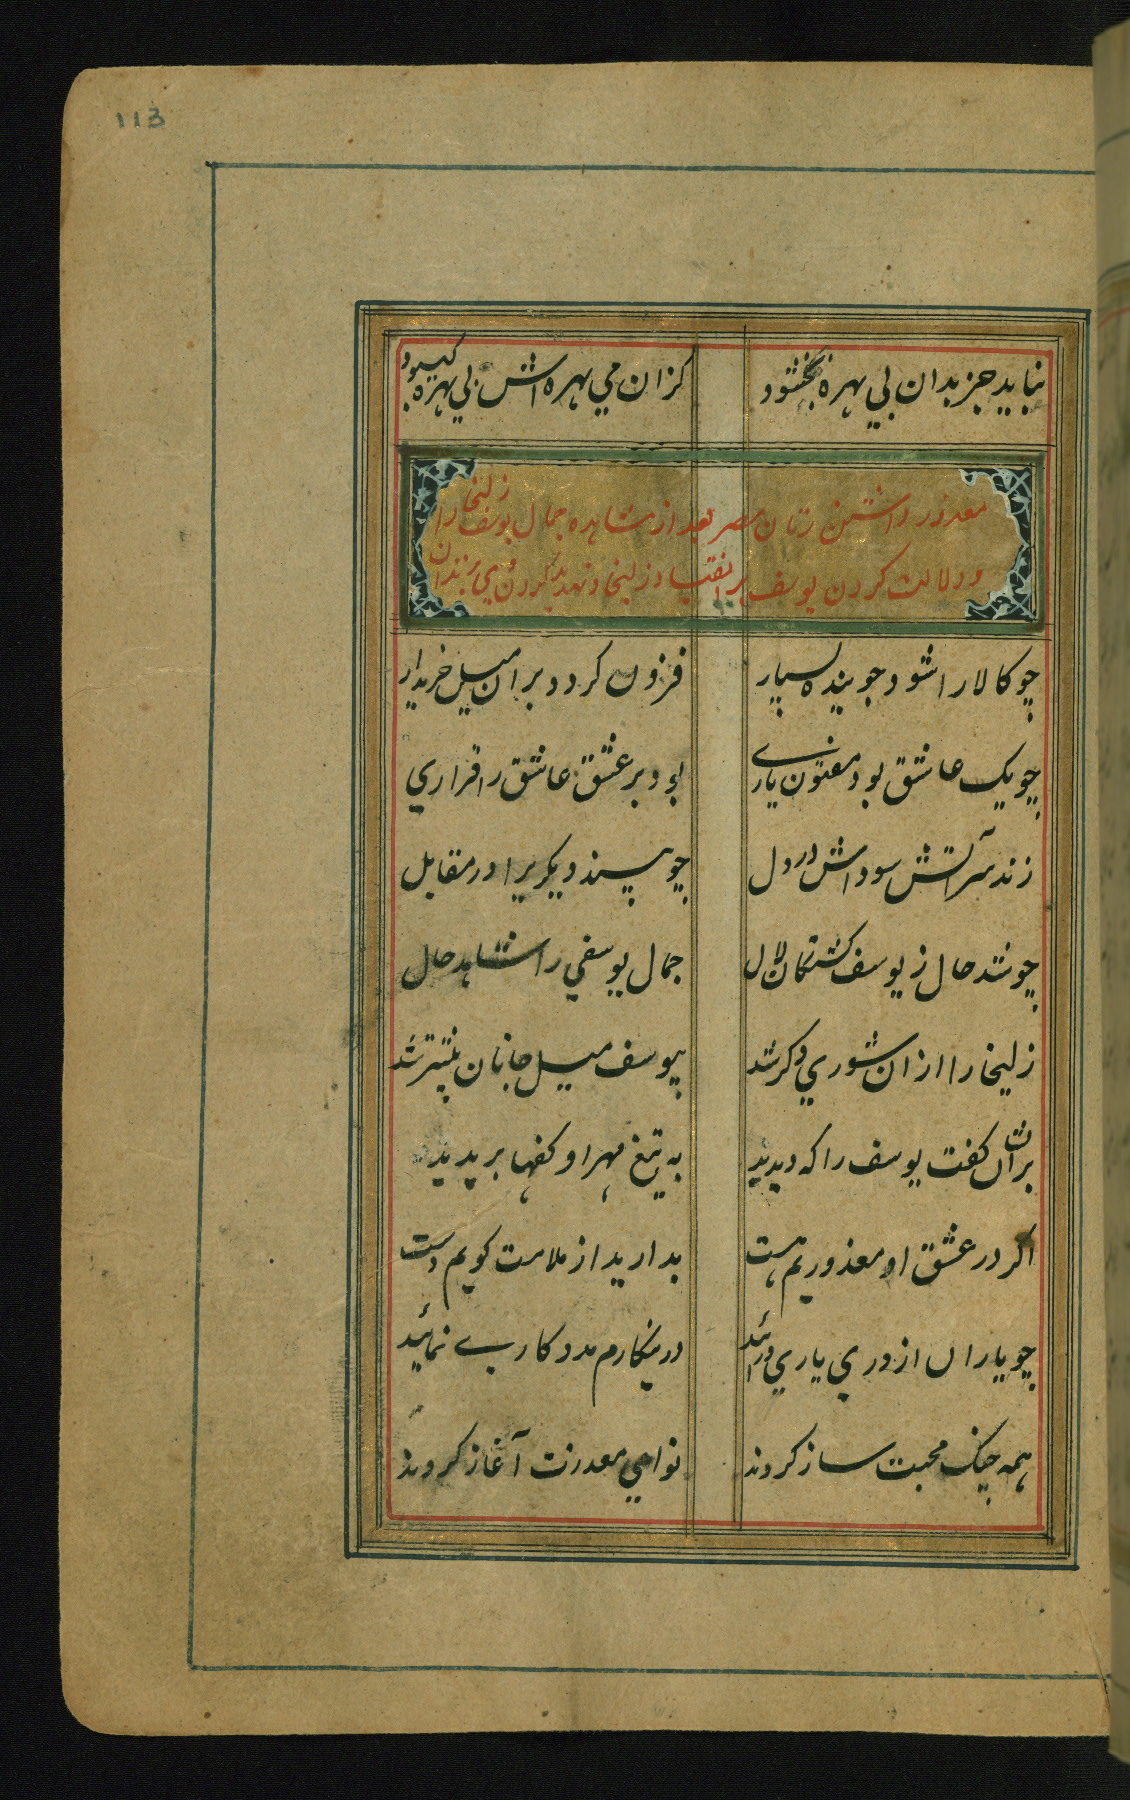 113
نبايد جز بدان بي بهره بخشود
كزان مي بهره اش بي بهره كيبود
معذور داشتن زنان مصر بعد از مشاهده جمال يوسف زليخا را
و دلالت كردن يوسف بر انقياد زليخا و تهديد كردن وي بزندان
چو كالا را شود جوينده بسيار
فزون كردد بران ميل خريدار
چو يك عاشق بود مفتون يارے
بود بر عشق عاشق را قراري
زند سر آتش سوداش در دل
چو بيند ديكريرا در مقابل
چو شد حال ز يوسف كشتكان لال
جمال يوسفي را شاهد حال
زليخا را ازان شوري دكر شد
بيوسف ميل جانان بيشتر شد
بران كفت يوسف را كه ديديد
به تيغ مهر او كفها بريديد
اكر در عشق او معذوريم هست
بداريد از ملامت كويم دست
چو ياران از در ياري درائيد
درينكارم مدد كارے نمائيد
همه چنك محبت ساز كردند
نواي معذرت آغاز كردند